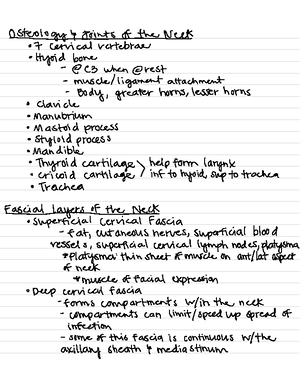 Osteology & Joints of the Neck
• 7 cervical vertebrae
• Hyoid bone
- @ C3 when @ rest
- muscle/ligament attachment
- Body, greater horns, lesser horns
• Clavicle
• Manubrium
• Mastoid process
• Styloid process
• Mandible
• Thyroid cartilage > help form larynx
• Cricoid cartilage inf to hyoid, sup to trachea
• Trachea
Fascial Layers of the Neck
• Superficial Cervical Fascia
- fat, cutaneous nerves, superficial blood
vessels, superficial cervical lymph nodes, platysma
*Platysma: thin sheet of muscle on ant/lat aspect
of neck
*muscle of facial expression
• Deep cervical fascia
- forms compartments w/in the neck
- compartments can limit/speed up spread of
infection
- some of this fascia is continuous w/the
axillary sheath & mediastinum